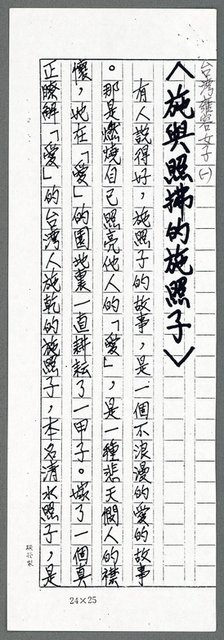 台灣雜誌女子(一)
〈施與照拂的施照子〉
有人說得好，施照子的故事，是一個不浪漫的愛的故事
。那是燃燒自己照亮他人的「愛」，是一種悲天憫人的襟
懷，她在「愛」的園地裏一直耕耘了一甲子。嫁了一個真
正瞭解「愛」的台灣人施乾的施照子，本名清水照子，是
24×25